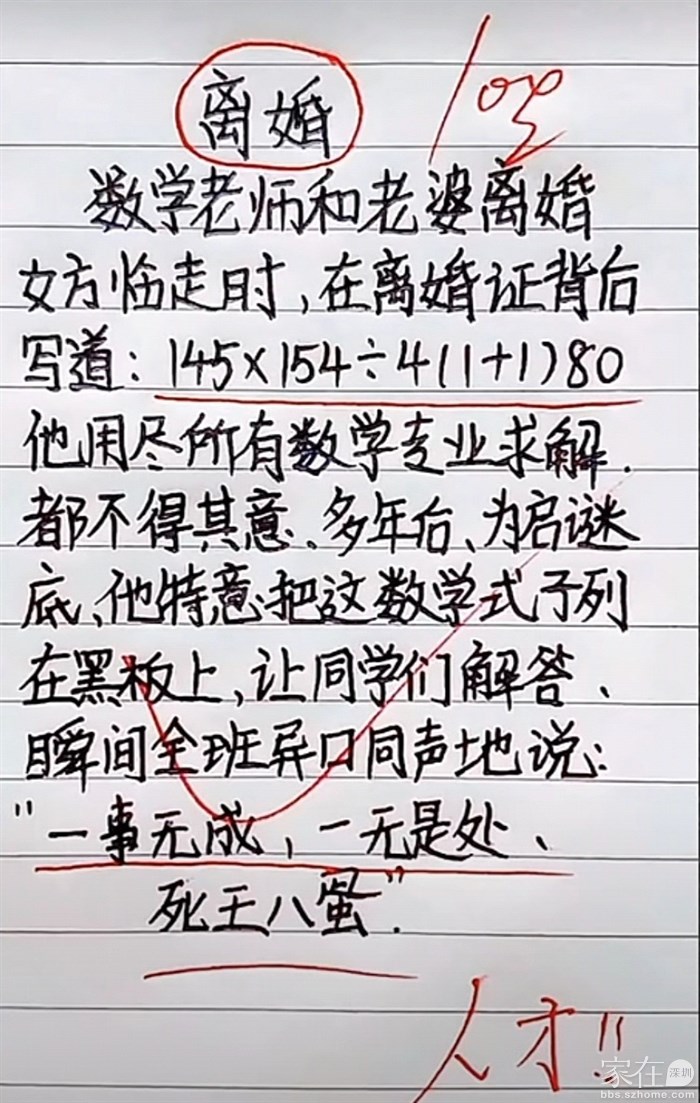 离婚
100
数学老师和老婆离婚
女方临走时,在离婚证背后
写道:145×154÷4(1+1)80
他用尽所有数学专业求解.
都不得其意、多年后、为启谜
底、他特意把这数学式子列
在黑板上,让同学们解答、
瞬间全班异口同声地说:
"一事无成,一无是处、
死王八蛋".
人才!!
家在深圳
bbs.szhome.com